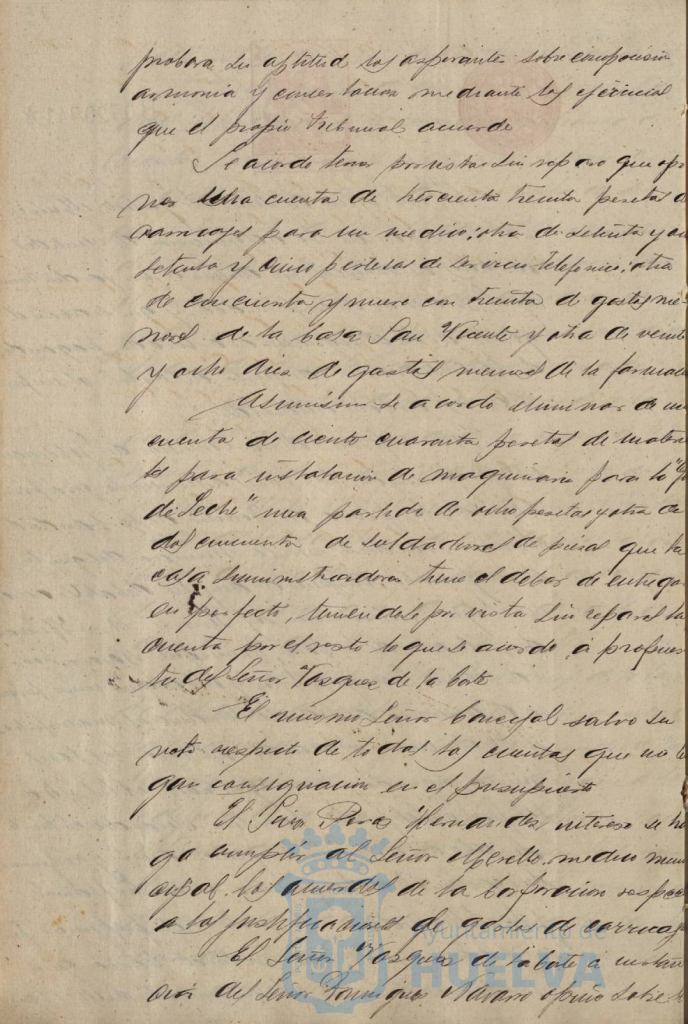 probará su aptitud los aspirantes sobre composición
armonia y concertacion mediante los ejercicios
que el propio tribunal acuerde
Se acordo tener por vistas sin reparo que opo
ner una cuenta de trescientas treinta pesetas de
carruajes para un medico; otra de setenta y
setenta y cinco pesetas de servicio telefonico; otra
de cincuenta y nueve con treinta de gastos me
nores de la Casa San Vicente y otra de veinte
y ocho diez de gastos menores de la farmacia
Asimismo se acordo eliminar de una
cuenta de ciento cuarenta pesetas de materia
les para instalacion de maquinaria para la
de Leche" una partida de ocho pesetas y otra de
dos cincuenta de soldadura de piezas que la
casa suministradora tiene el deber de entregar
en perfecto, teniendose por vista sin reparos la
cuenta por el resto lo que se acordo á propues
ta del Señor Vazquez de la Corte
El mismo Señor Concejal salvo su
voto respecto de todas las cuentas que no ten
gan consignacion en el presupuesto
El Señor Peras Hernandez intereso se ha
ga cumplir al Señor medico muni
cipal los acuerdos de la Corporacion respecto
a los justificantes de gastos de carruajes
El Señor Vazquez de la Corte á instan
cias del Señor Dominguez Navarro opinó sobre
Ayuntamiento de
HUELVA